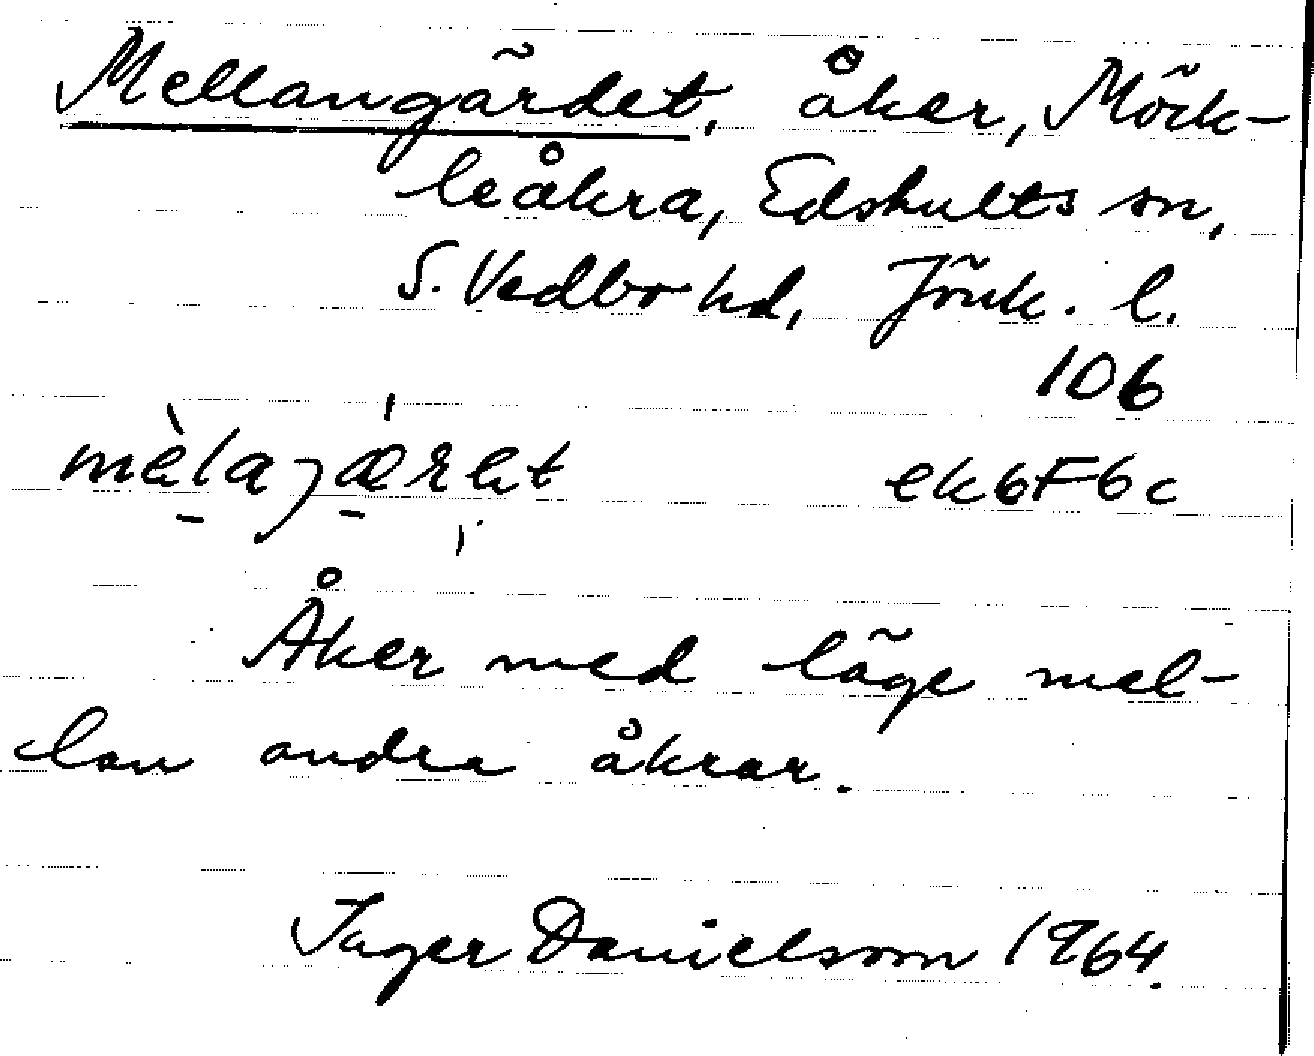 Mellangärdet, åker, Möck-
leåkra, Edshults sn,
S. Vedbo hd, Jönk. l.
106
mèlajæ̀ret ek6F6c
Åker med läge mel-
lan andra åkrar.
Inger Danielsson 1964.